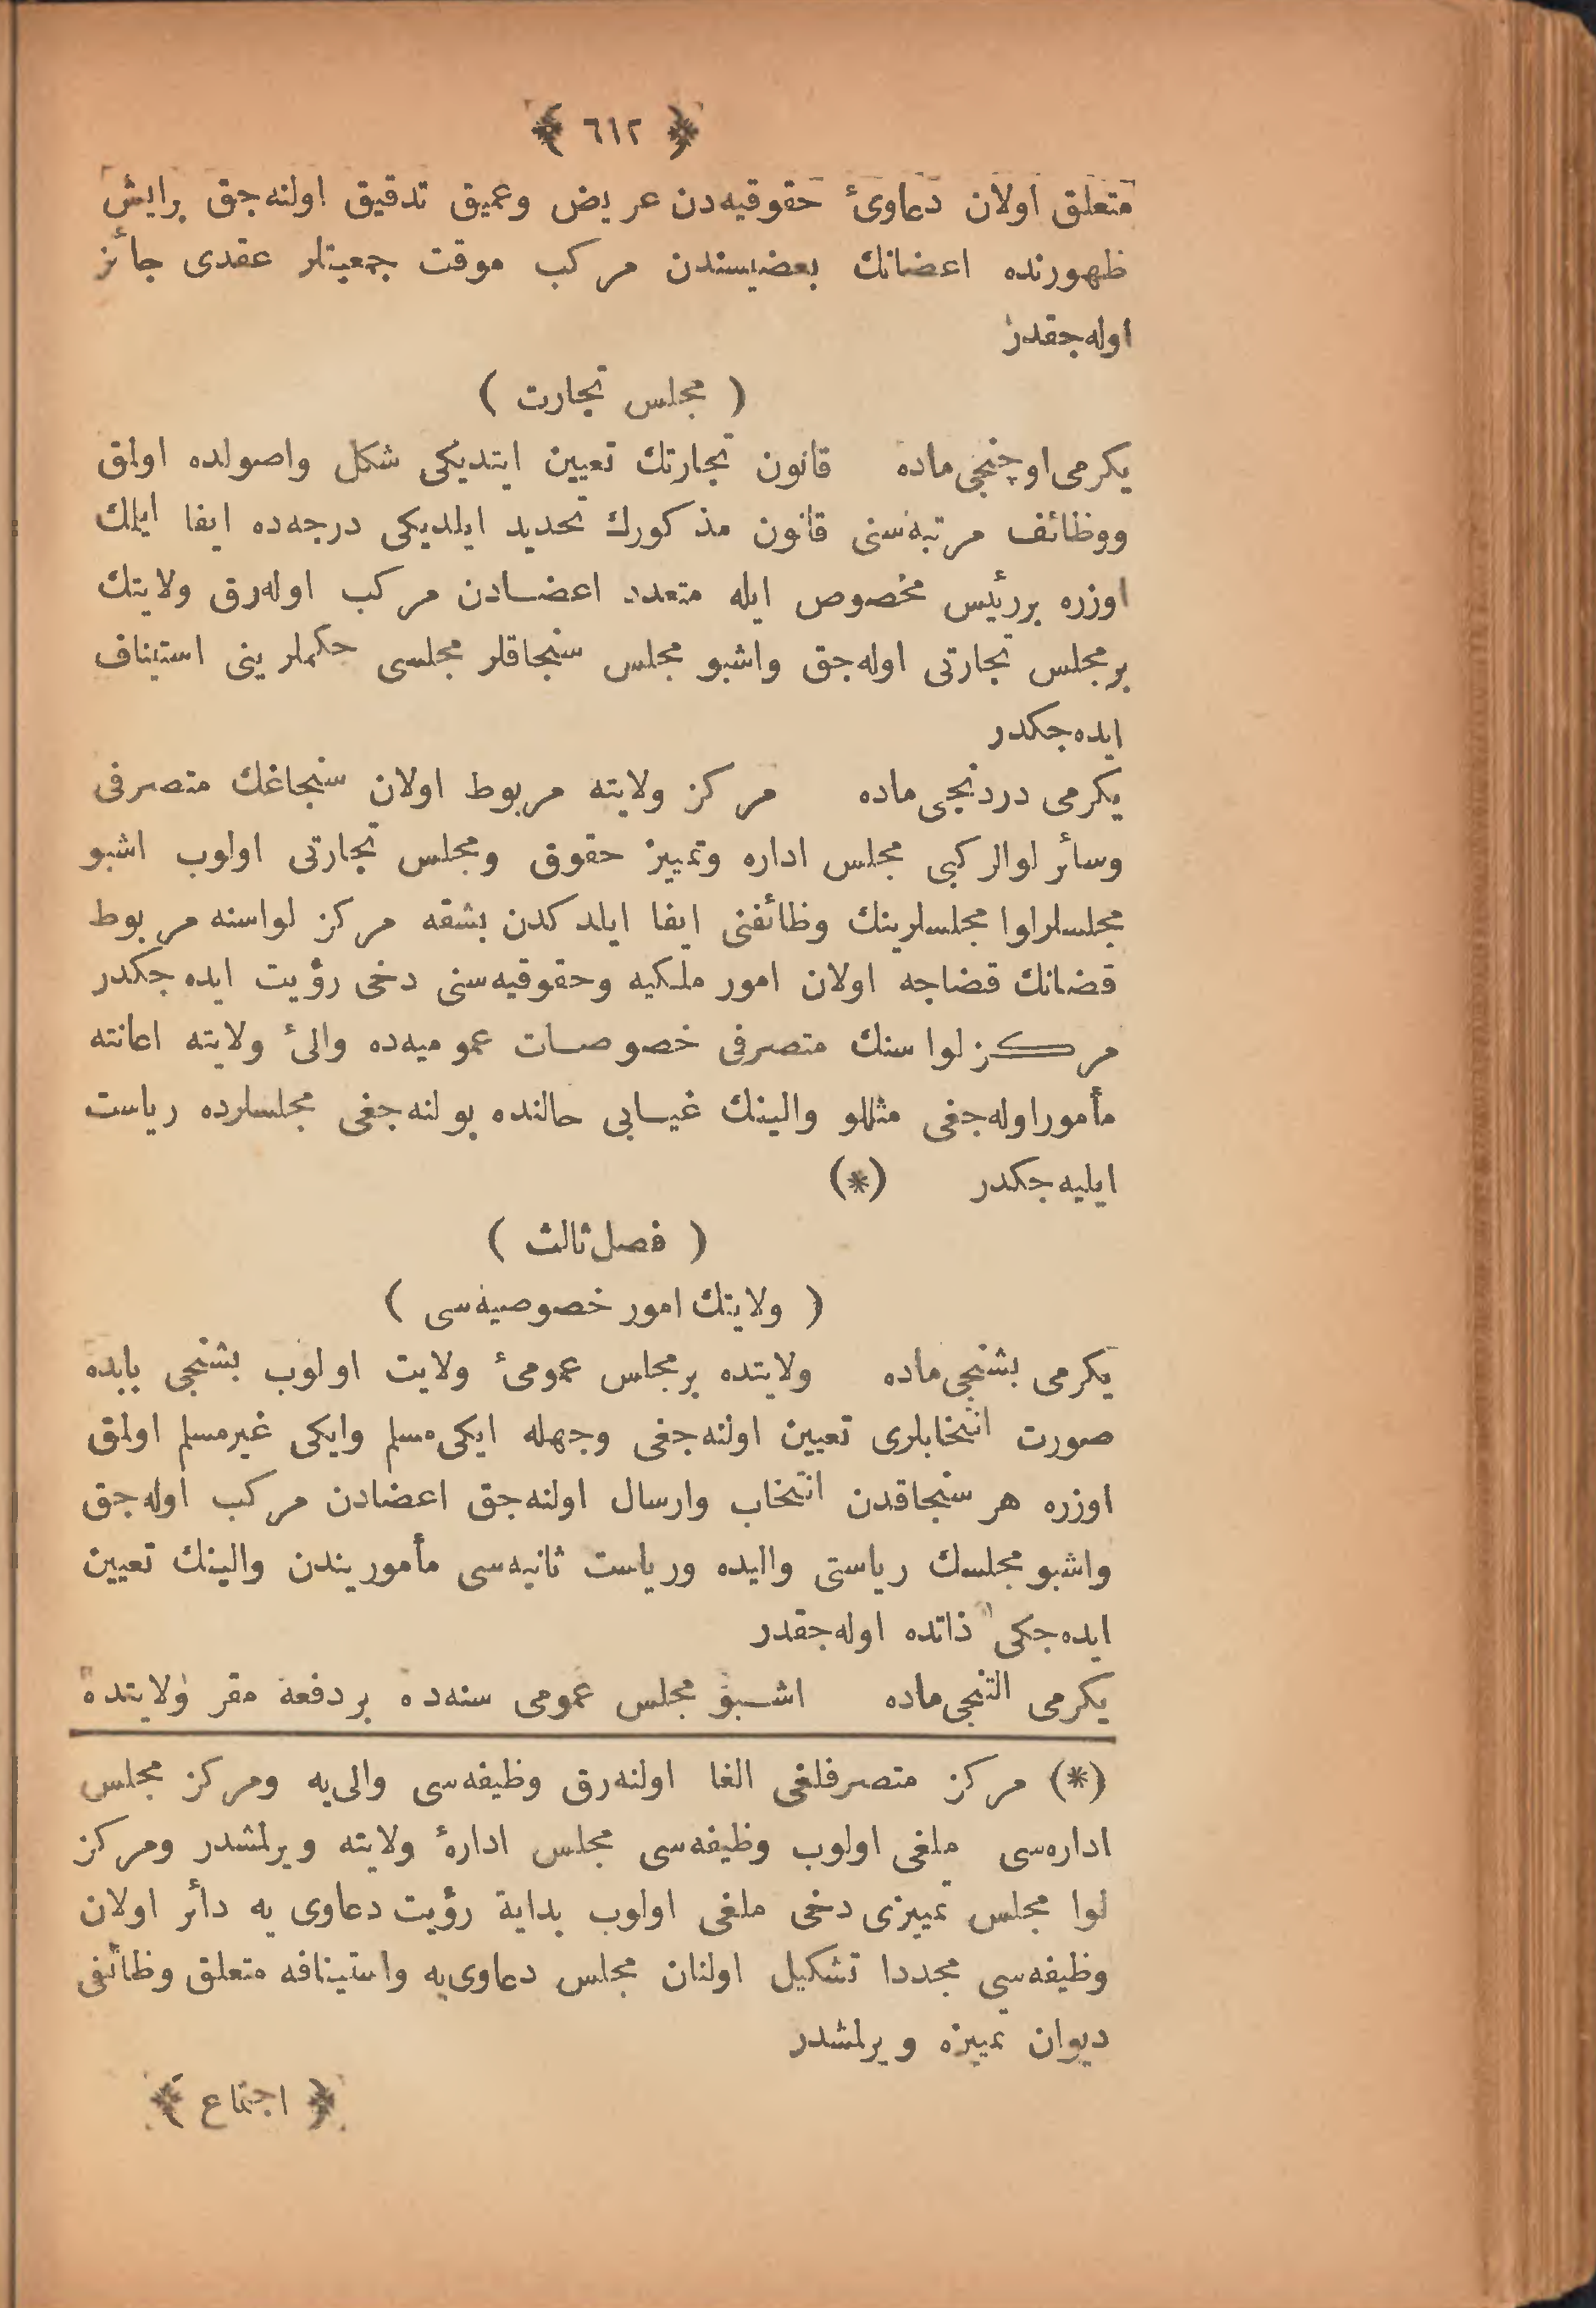 ﴿ ٦١٢ ﴾
متعلق اولان دعاوئ حقوقيه‌دن عريض وعميق تدقيق اولنه‌جق برايش
ظهورنده اعضانك بعضيسندن مركب موقت جمعيتلر عقدى جائز
اوله‌جقدر
( مجلس تجارت )
يكرمى اوچنجى ماده قانون تجارتك تعيين ايتديكى شكل واصولده اولمق
ووظائف مرتبه‌سنى قانون مذكورك تحديد ايلديكى درجه‌ده ايفا ايلمك
اوزره بررئيس مخصوص ايله متعدد اعضادن مركب اوله‌رق ولايتك
برمجلس تجارتى اوله‌جق واشبو مجلس سنجاقلر مجلسى حكملرينى استيناف
ايده‌جكدر
يكرمى دردنجى ماده مركز ولايته مربوط اولان سنجاغك متصرفى
وسائر لوالر كبى مجلس اداره وتمييز حقوق ومجلس تجارتى اولوب اشبو
مجلسلر لوا مجلسلرينك وظائفنى ايفا ايلدكدن بشقه مركز لواسنه مربوط
قضانك قضاجه اولان امور ملكيه وحقوقيه‌سنى دخى رؤيت ايده‌جكدر
مركز لواسنك متصرفى خصوصات عموميه‌ده والئ ولايته اعانته
مأمور اوله‌جغى مثللو والينك غيابى حالنده بولنه‌جغى مجلسلرده رياست
ايليه‌جكدر (*)
( فصل ثالث )
( ولايتك امور خصوصيه‌سى )
يكرمى بشنجى ماده ولايتده برمجلس عمومئ ولايت اولوب بشنجى بابده
صورت انتخابلرى تعيين اولنه‌جغى وجهله ايكى مسلم وايكى غيرمسلم اولمق
اوزره هر سنجاقدن انتخاب وارسال اولنه‌جق اعضادن مركب اوله‌جق
واشبو مجلسك رياستى واليده ورياست ثانيه‌سى مأموريندن والينك تعيين
ايده‌جكى ذاتده اوله‌جقدر
يكرمى التنجى ماده اشبو مجلس عمومى سنه‌ده بردفعه مقر ولايتده
(*) مركز متصرفلغى الغا اولنه‌رق وظيفه‌سى والى‌يه ومركز مجلس
اداره‌سى ملغى اولوب وظيفه‌سى مجلس ادارهٔ ولايته ويرلمشدر ومركز
لوا مجلس تمييزى دخى ملغى اولوب بداية رؤيت دعاوى‌يه دائر اولان
وظيفه‌سى مجددا تشكيل اولنان مجلس دعاوى‌يه واستينافه متعلق وظائفى
ديوان تمييزه ويرلمشدر
﴿ اجتماع ﴾